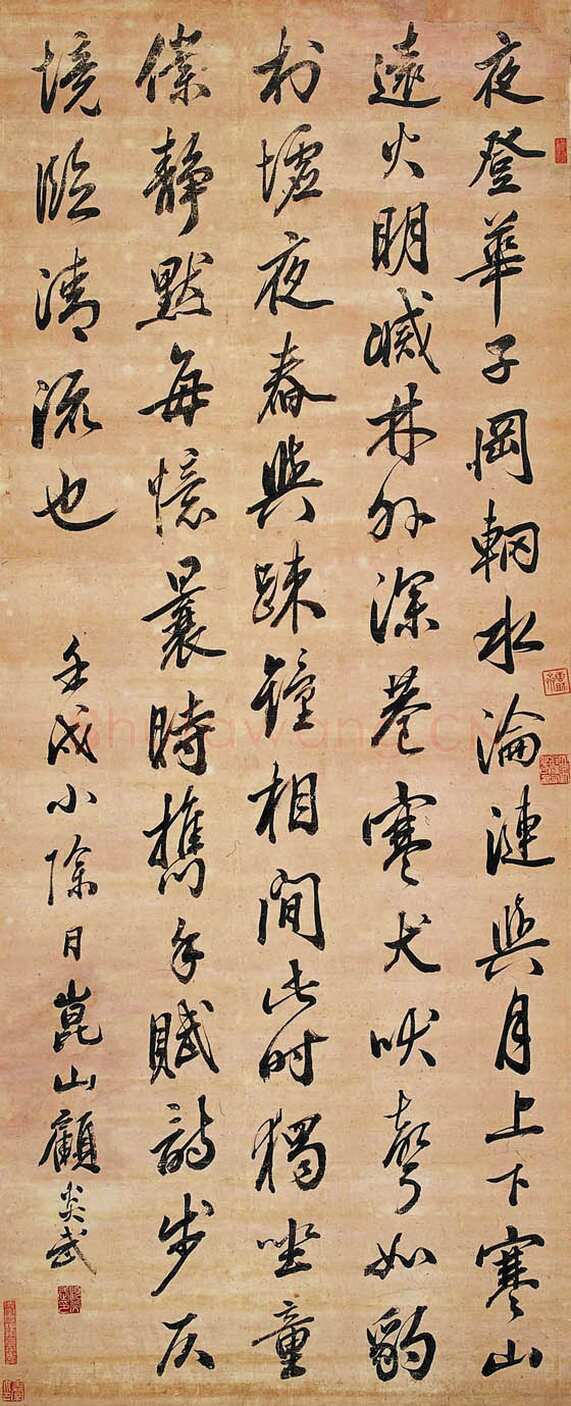 夜登華子岡輞水淪漣與月上下寒山
遠火明滅林外深巷寒犬吠聲如豹
村墟夜舂與疎鐘相間此时獨坐童
僕靜默每憶曩時攜手賦詩步仄
境臨清流也
壬戌小除日崑山顧炎武